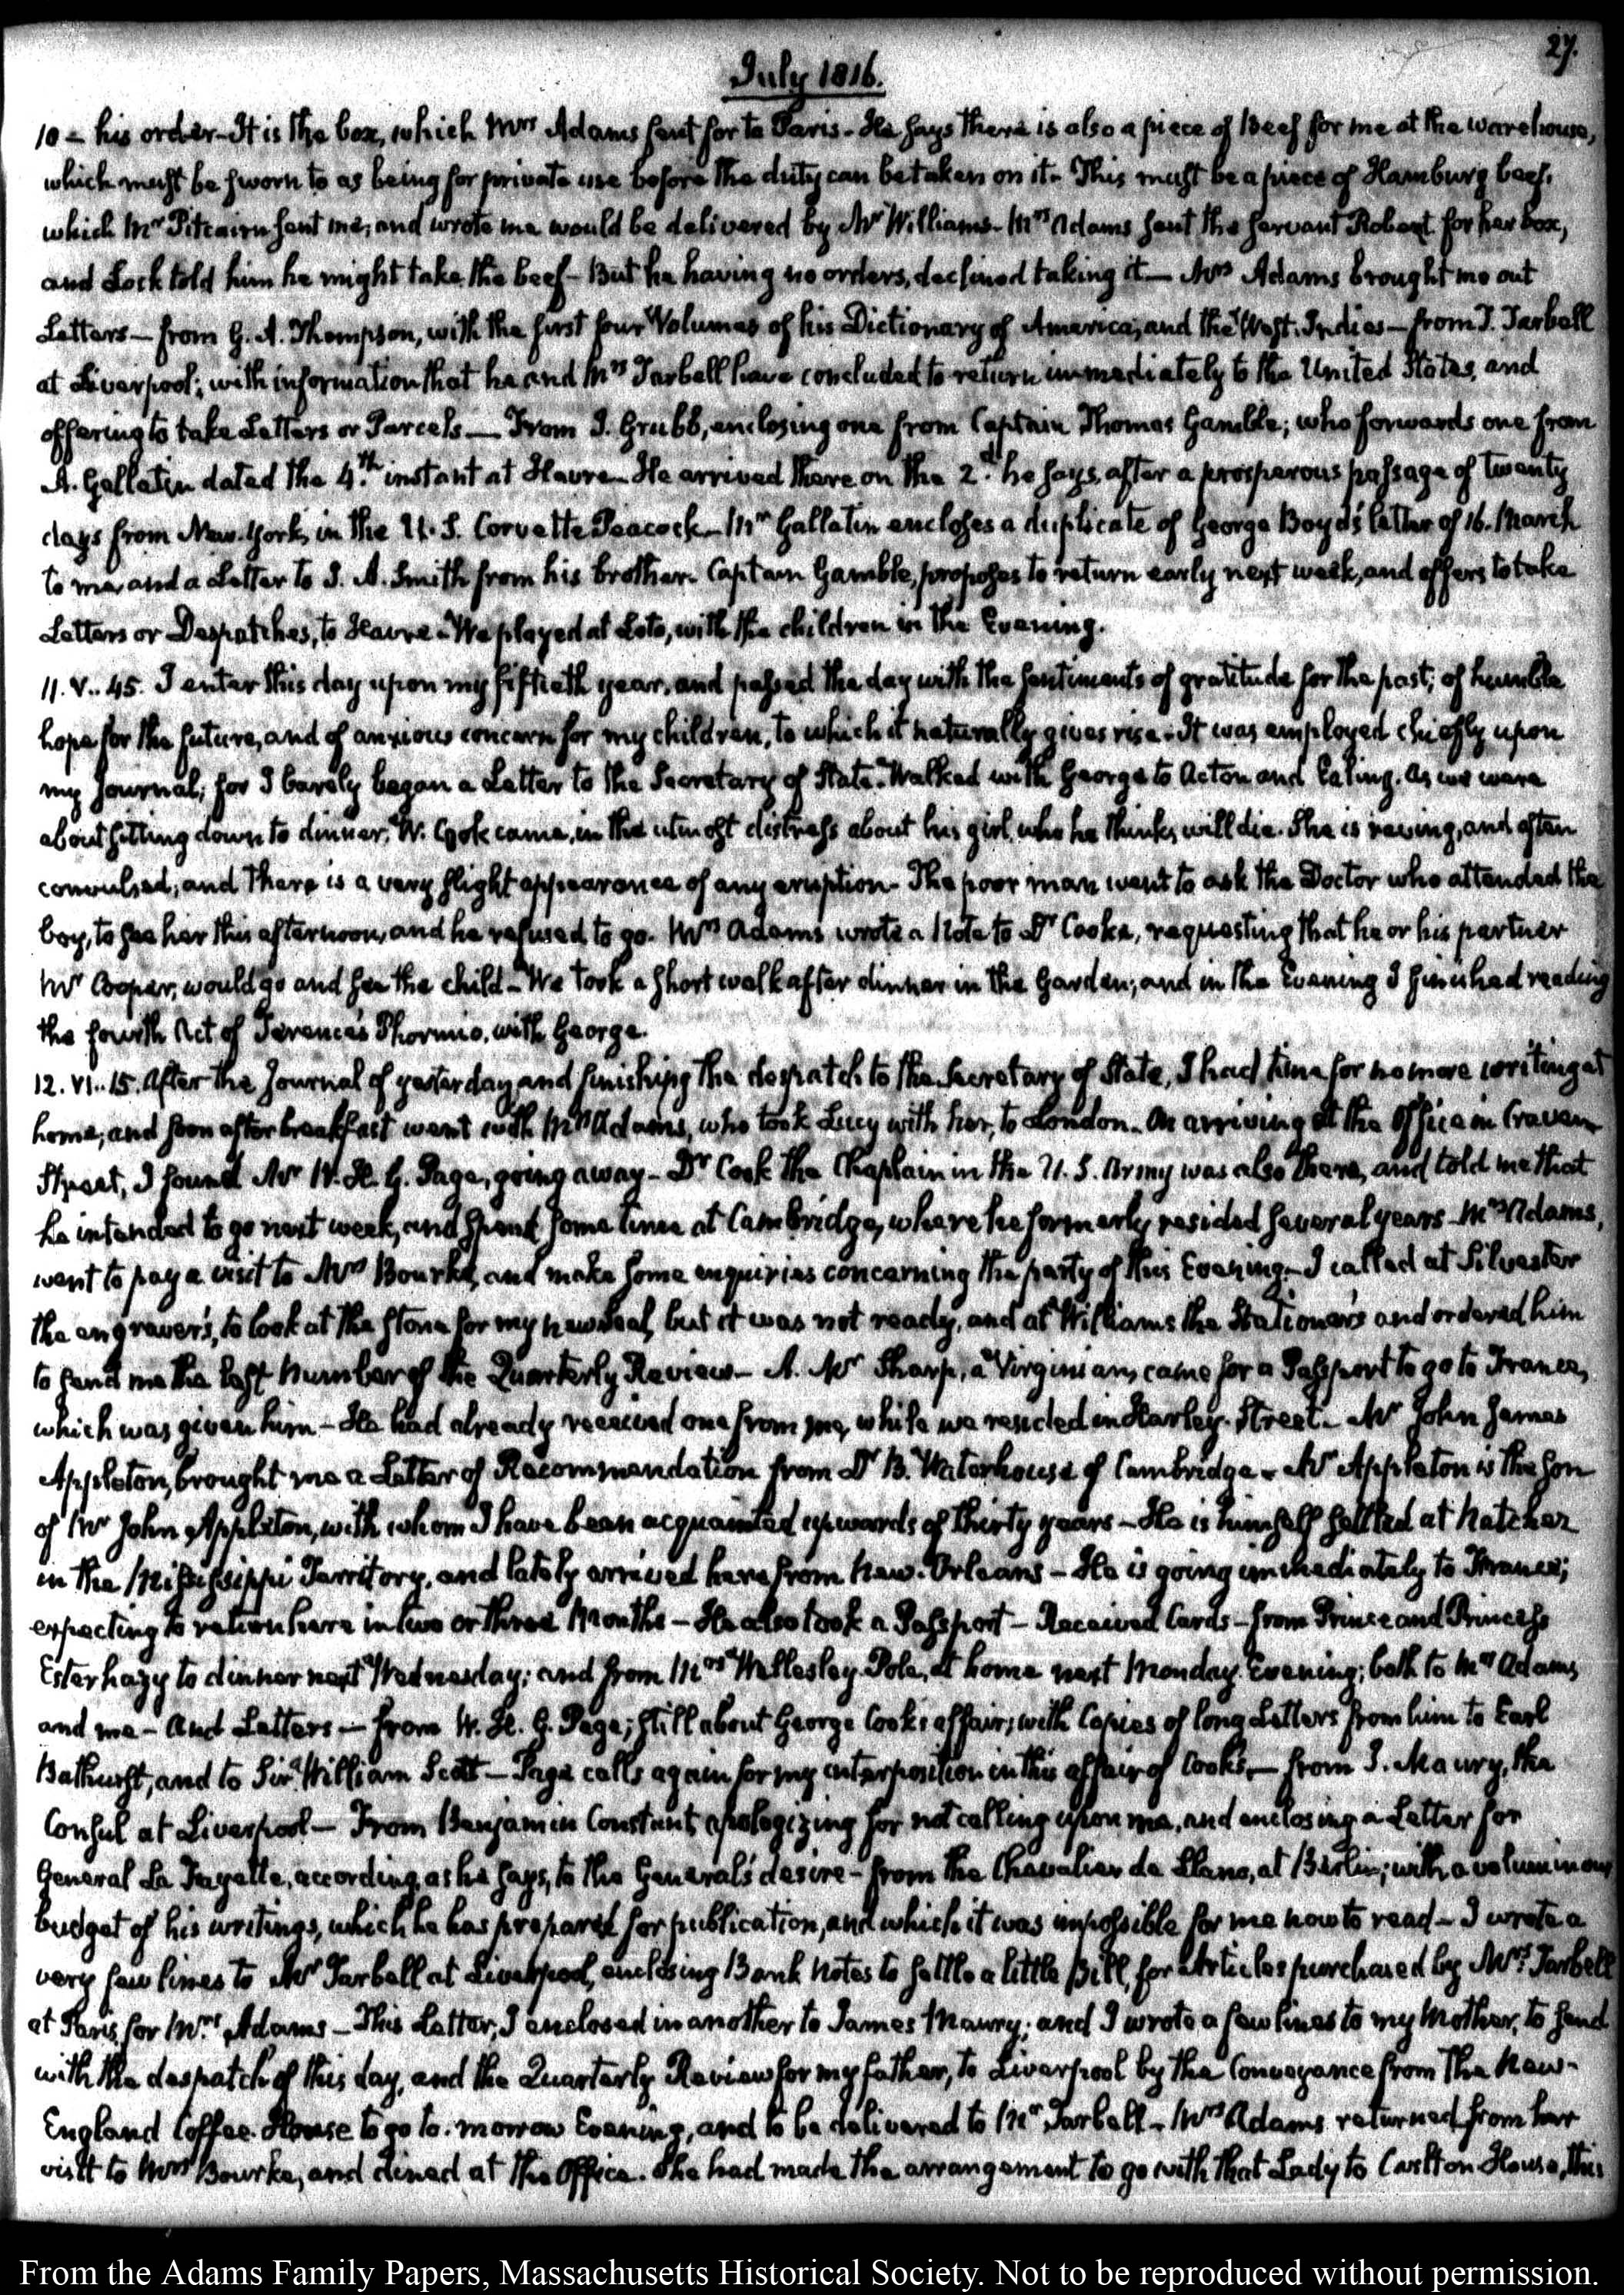 27.
July 1816.
10 – his order – It is the box, which Mrs Adams sent for to Paris – He says there is also a piece of Beef for me at the warehouse,
which must be sworn to as being for private use before the duty can be taken on it – This must be a piece of Hamburg beef,
which Mr Pitcairn sent me, and wrote me would be delivered by Mr Williams – Mrs Adams sent the servant Robert for her box,
and Lock told him he might take the beef – But he having no orders, declined taking it – Mrs Adams brought me out
Letters – from G. A. Thompson, with the first four Volumes of his Dictionary of America, and the West-Indies – from J. Tarbell
at Liverpool; with information that he and Mrs Tarbell have concluded to return immediately to the United States, and
offering to take Letters or Parcels – From J. Grubb, enclosing one from Captain Thomas Gamble; who forwards one from
A. Gallatin dated the 4th instant at Havre – He arrived there on the 2d he says, after a prosperous passage of twenty
days from New-York, in the U. S. Corvette Peacock – Mr Gallatin encloses a duplicate of George Boyd's letter of 16. March
to me and a Letter to J. A. Smith from his brother. Captain Gamble, proposes to return early next week, and offers to take
Letters or Despatches, to Havre – We played at Loto, with the children in the Evening.
11. V.. 45. I enter this day upon my fiftieth year, and passed the day with the sentiments of gratitude for the past; of humble
hope for the future, and of anxious concern for my children, to which it naturally gives rise – It was employed chiefly upon
my Journal; for I barely began a Letter to the Secretary of State. Walked with George to Acton and Ealing. As we were
about sitting down to dinner, W. Cook came, in the utmost distress about his girl, who he thinks will die. She is raving, and often
convulsed; and there is a very slight appearance of any eruption – The poor man went to ask the Doctor who attended the
boy, to see her this afternoon, and he refused to go. Mrs Adams wrote a Note to Dr Cooke, requesting that he or his partner
Mr Cooper, would go and see the child – We took a short walk after dinner in the Garden; and in the Evening I finished reading
the fourth Act of Terence's Phormio, with George.
12. VI.. 15. After the Journal of yesterday, and finishing the despatch to the Secretary of State, I had time for no more writing at
home; and soon after breakfast went with Mrs Adams, who took Lucy with her, to London – On arriving at the Office in Craven
Street, I found Mr W. H. G. Page, going away – Dr Cook the Chaplain in the U. S. Army was also there, and told me that
he intended to go next week, and spend some time at Cambridge, where he formerly resided several years – Mrs Adams,
went to pay a visit to Mrs Bourke, and make some enquiries concerning the party of this Evening – I called at Silvester
the engraver's, to look at the stone for my new Seal, but it was not ready, and at Williams the Stationer's and ordered him
to send me the last Number of the Quarterly Review – A. Mr Sharp, a Virginian, came for a Passport to go to France,
which was given him – He had already received one from me, while we resided in Harley-Street – Mr John James
Appleton, brought me a Letter of Recommendation from Dr B. Waterhouse of Cambridge – Mr Appleton is the Son
of Mr John Appleton, with whom I have been acquainted upwards of thirty years – He is himself settled at Natchez
in the Mississippi Territory, and lately arrived here from New-Orleans – He is going immediately to France;
expecting to return here in two or three Months – He also took a Passport – Received Cards – from Prince and Princess
Esterhazy to dinner next Wednesday; and from Mrs Wellesley-Pole, at home next Monday Evening; both to Mrs Adams
and me – And Letters – from W. H. G. Page; still about George Cook's affair; with Copies of long Letters from him to Earl
Bathurst, and to Sir William Scott – Page calls again for my interposition in this affair of Cook's – from J. Maury, the
Consul at Liverpool – From Benjamin Constant apologizing for not calling upon me, and enclosing a Letter for
General La Fayette, according as he says, to the General's desire – from the Chevalier de Llano, at Berlin; with a voluminous
budget of his writings, which he has prepared for publication, and which it was impossible for me now to read – I wrote a
very few lines to Mr Tarbell at Liverpool, enclosing Bank Notes to settle a little Bill, for Articles purchased by Mrs Tarbell
at Paris for Mrs Adams – This Letter, I enclosed in another to James Maury; and I wrote a few lines to my Mother, to send
with the despatch of this day, and the Quarterly Review for my father, to Liverpool by the Conveyance from the New-
England Coffee-House to go to-morrow Evening, and to be delivered to Mr Tarbell – Mrs Adams returned from her
visit to Mrs Bourke, and dined at the Office. She had made the arrangement to go with that Lady to Carlton House, this
From the Adams Family Papers, Massachusetts Historical Society. Not to be reproduced without permission.